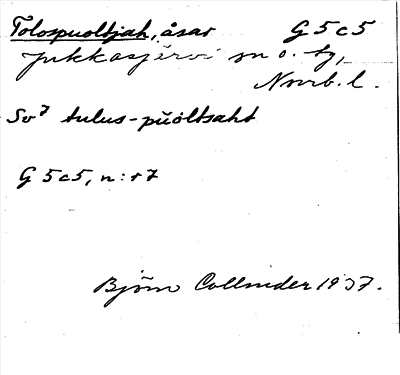 Tolospuoltjah, åsar G5c5
Jukkasjärvi sn o. tg,
Norrb. l.
Sv7 tulus-pŭŏltsaht
G5c5, n:r 7
Björn Collinder 1937.